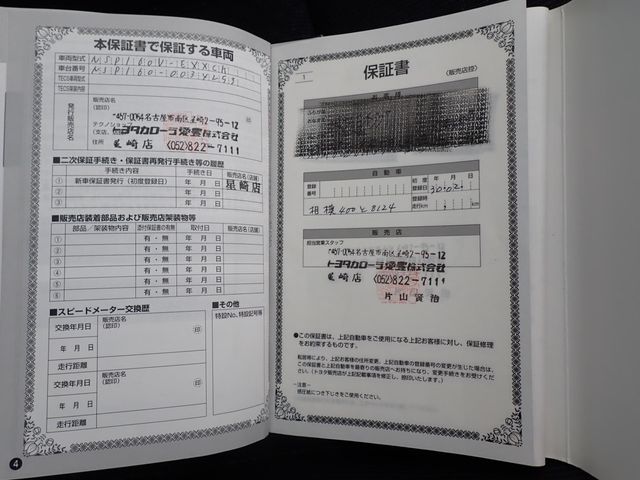 本保証書で保証する車両
車両型式 NSP160V-EXXCK
車台番号 NSP160-0034253
TECS車両型式
TECS架装内容
発行販売店名
販売店名
(認印)
テクノショップ
(支店、
住所
〒457-0064名古屋市南区星崎2-95-12
トヨタカローラ愛豊株式会社
星崎店 (052)822-7111
■二次保証手続き・保証書再発行手続き等の履歴
手続き内容 手続き日 販売店名(店舗)
① 新車保証書発行(初度登録日) 年 月 日 星崎店
② 年 月 日
③ 年 月 日
■販売店装着部品および販売店架装物等
部品/架装物内容 添付保証書の有無 取付日 販売店名(店舗)
① 有・無 年 月 日
② 有・無 年 月 日
③ 有・無 年 月 日
④ 有・無 年 月 日
⑤ 有・無 年 月 日
⑥ 有・無 年 月 日
■スピードメーター交換歴
交換年月日 販売店名
(認印) 印
年 月 日
走行距離
交換年月日 販売店名
(認印) 印
年 月 日
走行距離
■その他
特設No、特設記号等
4
1
保証書
(販売店控)
お客様
自動車
登録番号
初度登録日 年 月 日
30.02.
相模400と8124
走行km
販売店
担当営業スタッフ
〒457-0064名古屋市南区星崎2-95-12
トヨタカローラ愛豊株式会社
星崎店 (052)822-7111
片山賢治
●この保証書は、上記自動車をご使用になる上記お客様に対し、保証修理
をお約束するものです。
転居等により、上記お客様の住所変更、上記自動車の登録番号の変更が生じた場合は、
この保証書と上記自動車を最寄りの販売店へお持ちになり、変更手続きをお受けください。
(トヨタ販売店が上記記載事項を補正し、捺印いたします。)
-注意-
感圧紙につき下じきをご使用ください。